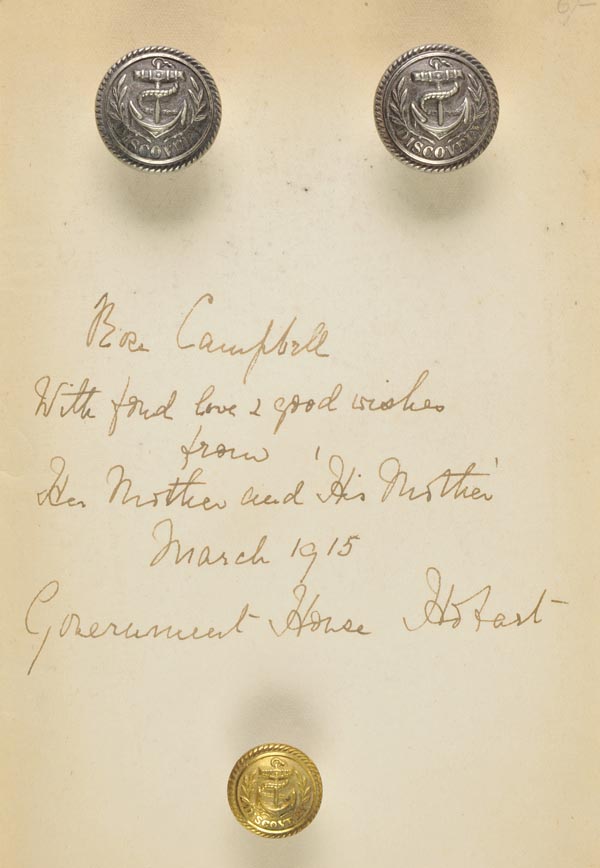 6/-
DISCOVERY
DISCOVERY
Rose Campbell
With fond love & good wishes
from
Her Mother and 'His Mother'
March 1915
Government House Hobart
DISCOVERY